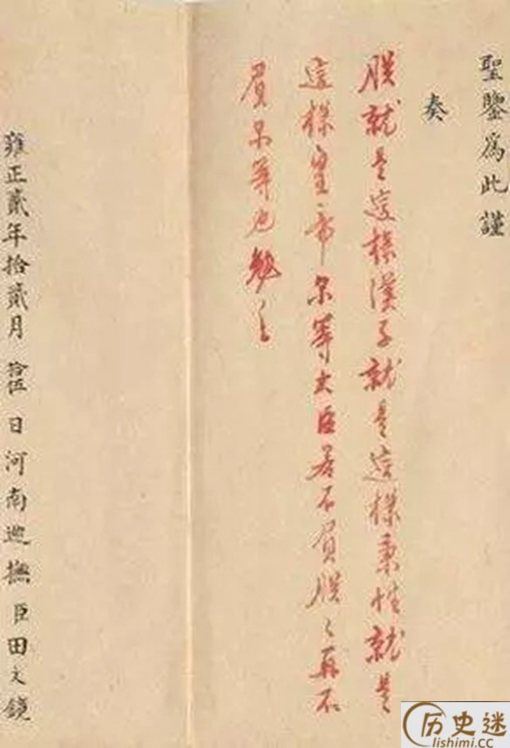 聖鑒為此謹
奏
朕就是這樣漢子就是這樣秉性就是
這樣皇帝尔等大臣若不負朕々再不
負尔等也勉之
雍正貳年拾貳月拾伍日河南巡撫臣田文鏡
历史迷
lishimi.cc